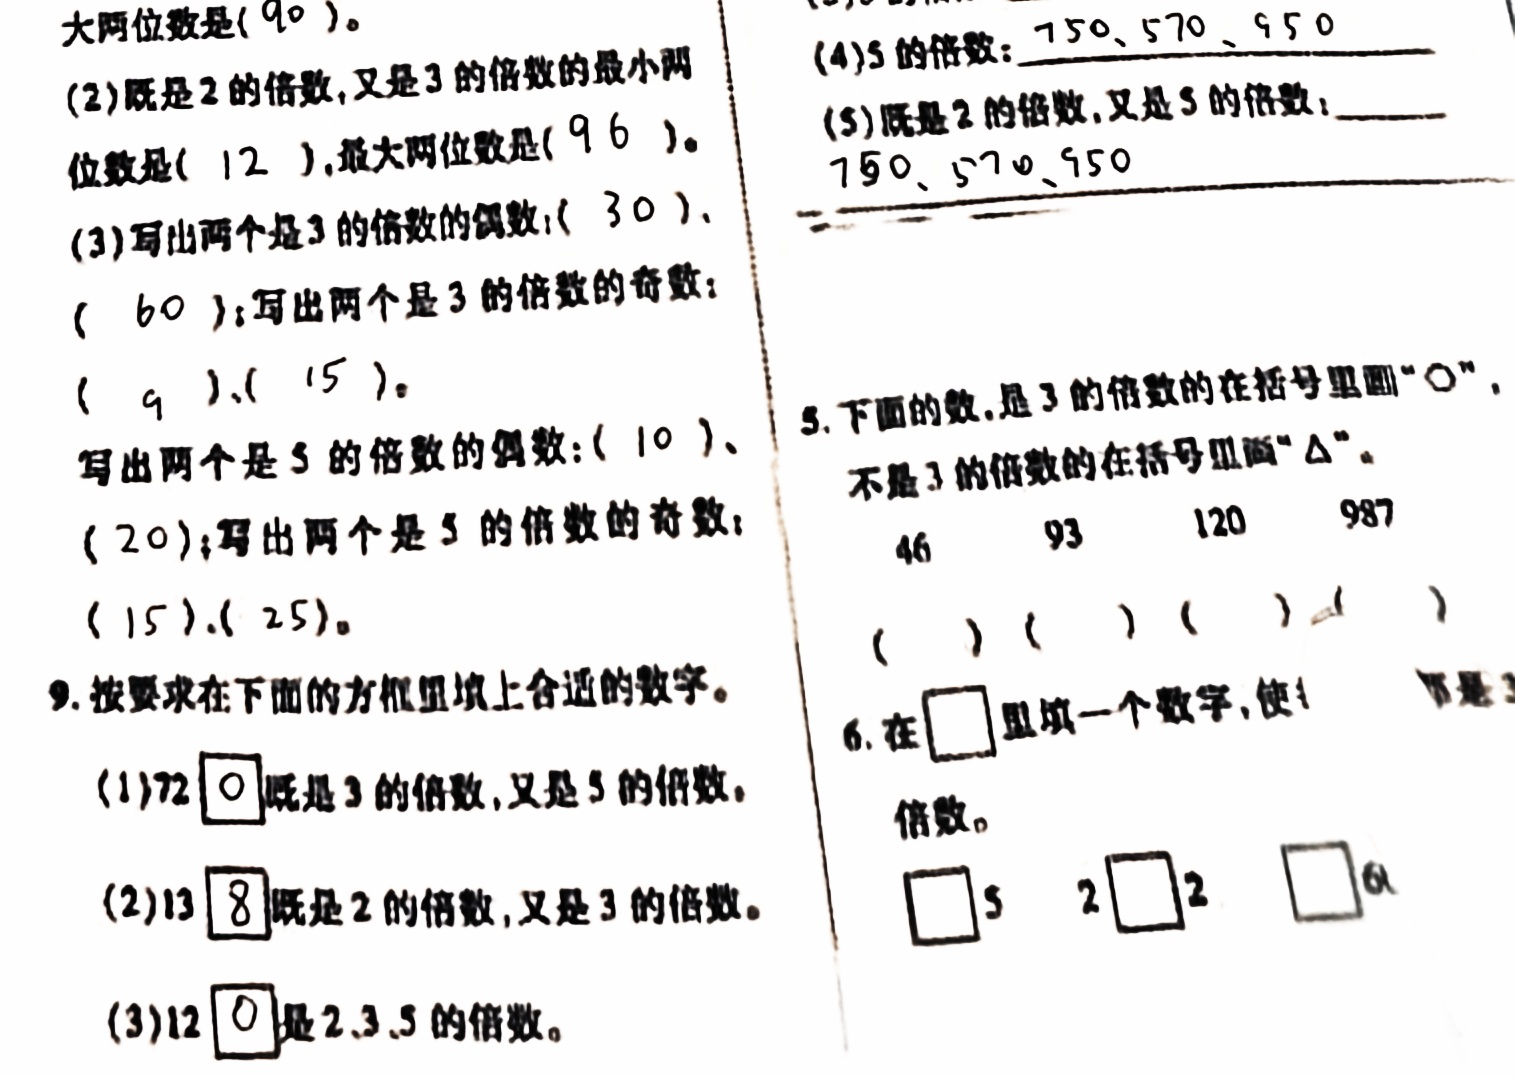 大两位数是(90)。
(2)既是2的倍数,又是3的倍数的最小两
位数是(12),最大两位数是(96)。
(3)写出两个是3的倍数的偶数:(30)、
(60);写出两个是3的倍数的奇数:
(9)、(15)。
写出两个是5的倍数的偶数:(10)、
(20);写出两个是5的倍数的奇数:
(15)、(25)。
9.按要求在下面的方框里填上合适的数字。
(1)72 0 既是3的倍数,又是5的倍数。
(2)13 8 既是2的倍数,又是3的倍数。
(3)12 0 是2、3、5的倍数。
(4)5的倍数:750、570、950
(5)既是2的倍数,又是5的倍数:
750、570、950
5.下面的数,是3的倍数的在括号里画“○”,
不是3的倍数的在括号里画“△”。
46 93 120 987
( ) ( ) ( ) ( )
6.在□里填一个数字,使 是3
倍数。
□5 2□2 □6